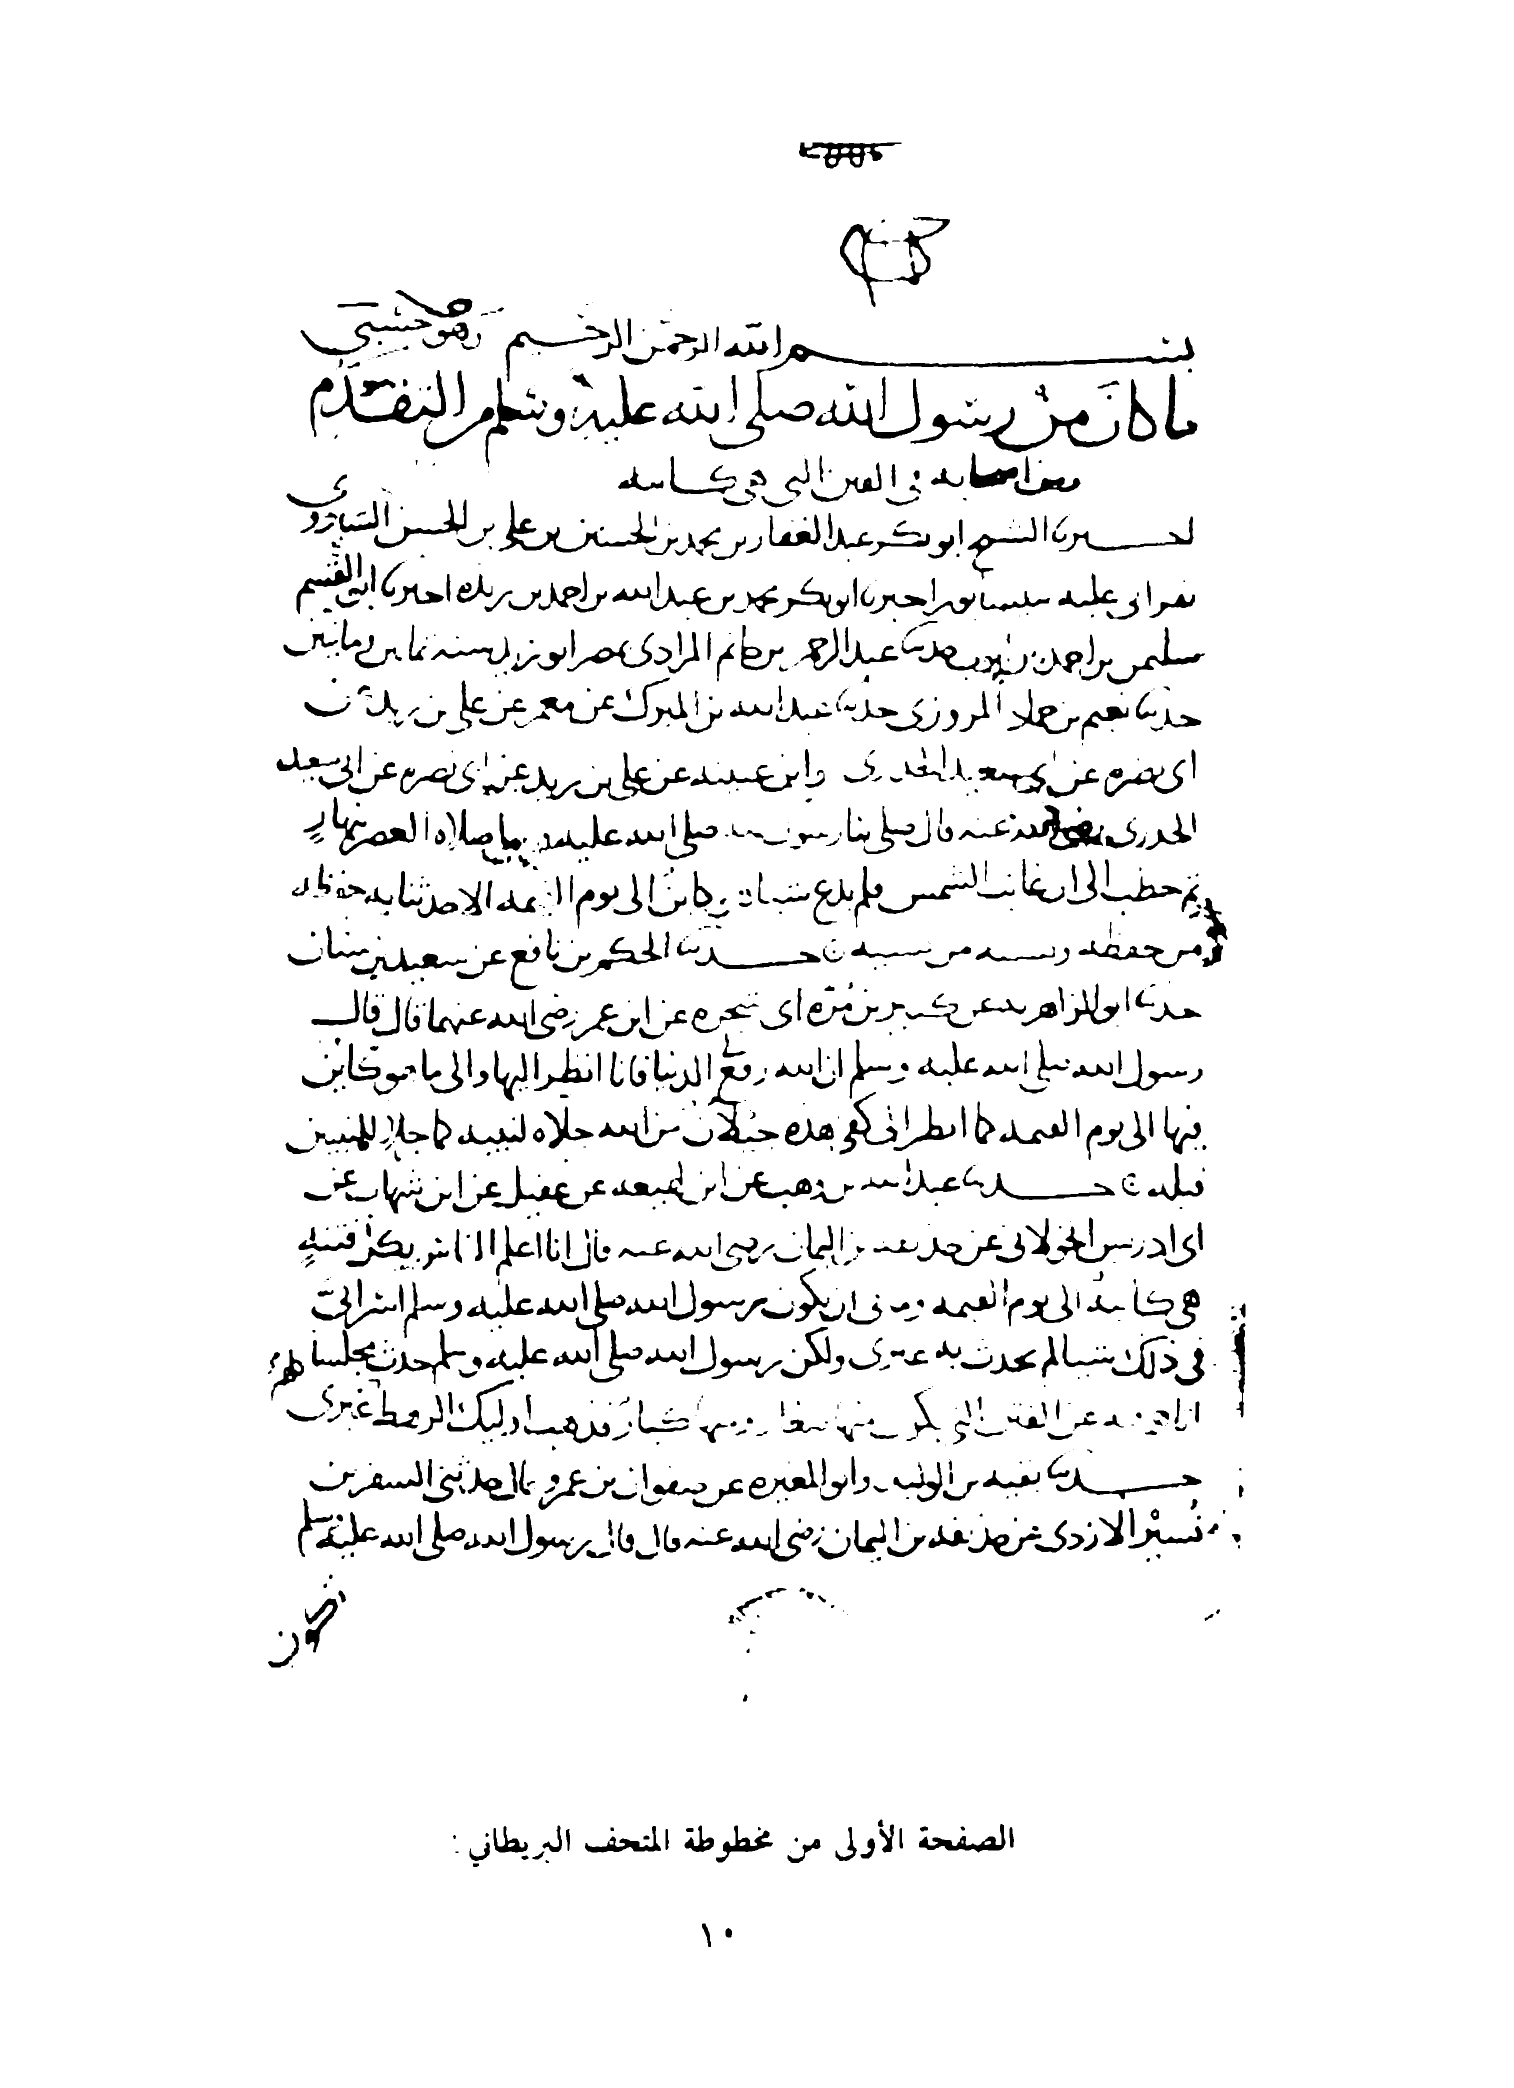 بسم الله الرحمن الرحيم وهو حسبي
ما كان من رسول الله صلى الله عليه وسلم من التقدم
ومن اصحابه في الفتن التي هي كاينه
اخبرنا الشيخ ابو بكر عبد الغفار بن محمد بن الحسين بن علي بن الحسن الشيروي
بقراتي عليه بنيسابور اخبرنا ابو بكر محمد بن عبد الله بن احمد بن ريذه اخبرنا ابو القسم
سليمن بن احمد بن ايوب حدثنا عبد الرحمن بن حاتم المرادي بمصر ابو زيد سنه ثمانين ومايتين
حدثنا نعيم بن حماد المروزي حدثنا عبد الله بن المبرك عن معمر عن علي بن زيد عن
ابي نضره عن ابي سعيد الخدري وابن عيينه عن علي بن زيد عن ابي نضره عن ابي سعيد
الخدري رضي الله عنه قال صلى بنا رسول الله صلى الله عليه وسلم يوما صلاه العصر بنهار
ثم خطب الى ان غابت الشمس فلم يدع شيئا هو كاين الى يوم القيمه الا حدثنا به حفظه
من حفظه ونسيه من نسيه حدثنا الحكم بن نافع عن سعيد بن سنان
حدثنا ابو الزاهريه عن كثير بن مره ابي شجره عن ابن عمر رضي الله عنهما قال قال
رسول الله صلى الله عليه وسلم ان الله رفع لي الدنيا فانا انظر اليها والى ما هو كاين
فيها الى يوم القيمه كما انظر الى كفي هذه جليان من الله جلاه لنبيه كما جلا للنبيين
قبله حدثنا عبد الله بن وهب عن ابن لهيعه عن عقيل عن ابن شهاب عن
ابي ادريس الخولاني عن حذيفه بن اليمان رضي الله عنه قال انا اعلم الناس بكل فتنه
هي كاينه الى يوم القيمه وما بي ان يكون رسول الله صلى الله عليه وسلم اسر الي
في ذلك شيا لم يحدث به غيري ولكن رسول الله صلى الله عليه وسلم حدث مجلسا
انا فيه عن الفتن التي يكون منها صغار ومنها كبار فذهب اوليك الرهط غيري
حدثنا بقيه بن الوليد وابو المغيره عن صفوان بن عمرو قال حدثني السفر بن
نسير الازدي عن حذيفه بن اليمان رضي الله عنه قال قال رسول الله صلى الله عليه وسلم
تكون
الصفحة الأولى من مخطوطة المتحف البريطاني :
١٠